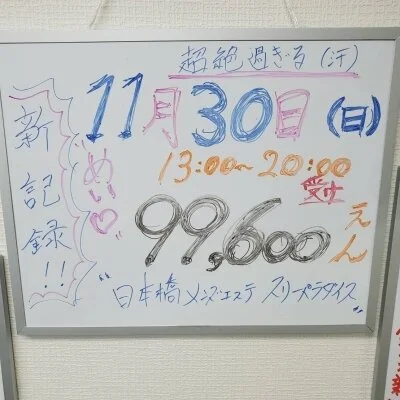 超絶過ぎる(汗)
11月30日(日)
新記録!!
"めい♡"
13:00〜20:00
受け
99,600えん
"日本橋メンズエステ スリーパラダイス"